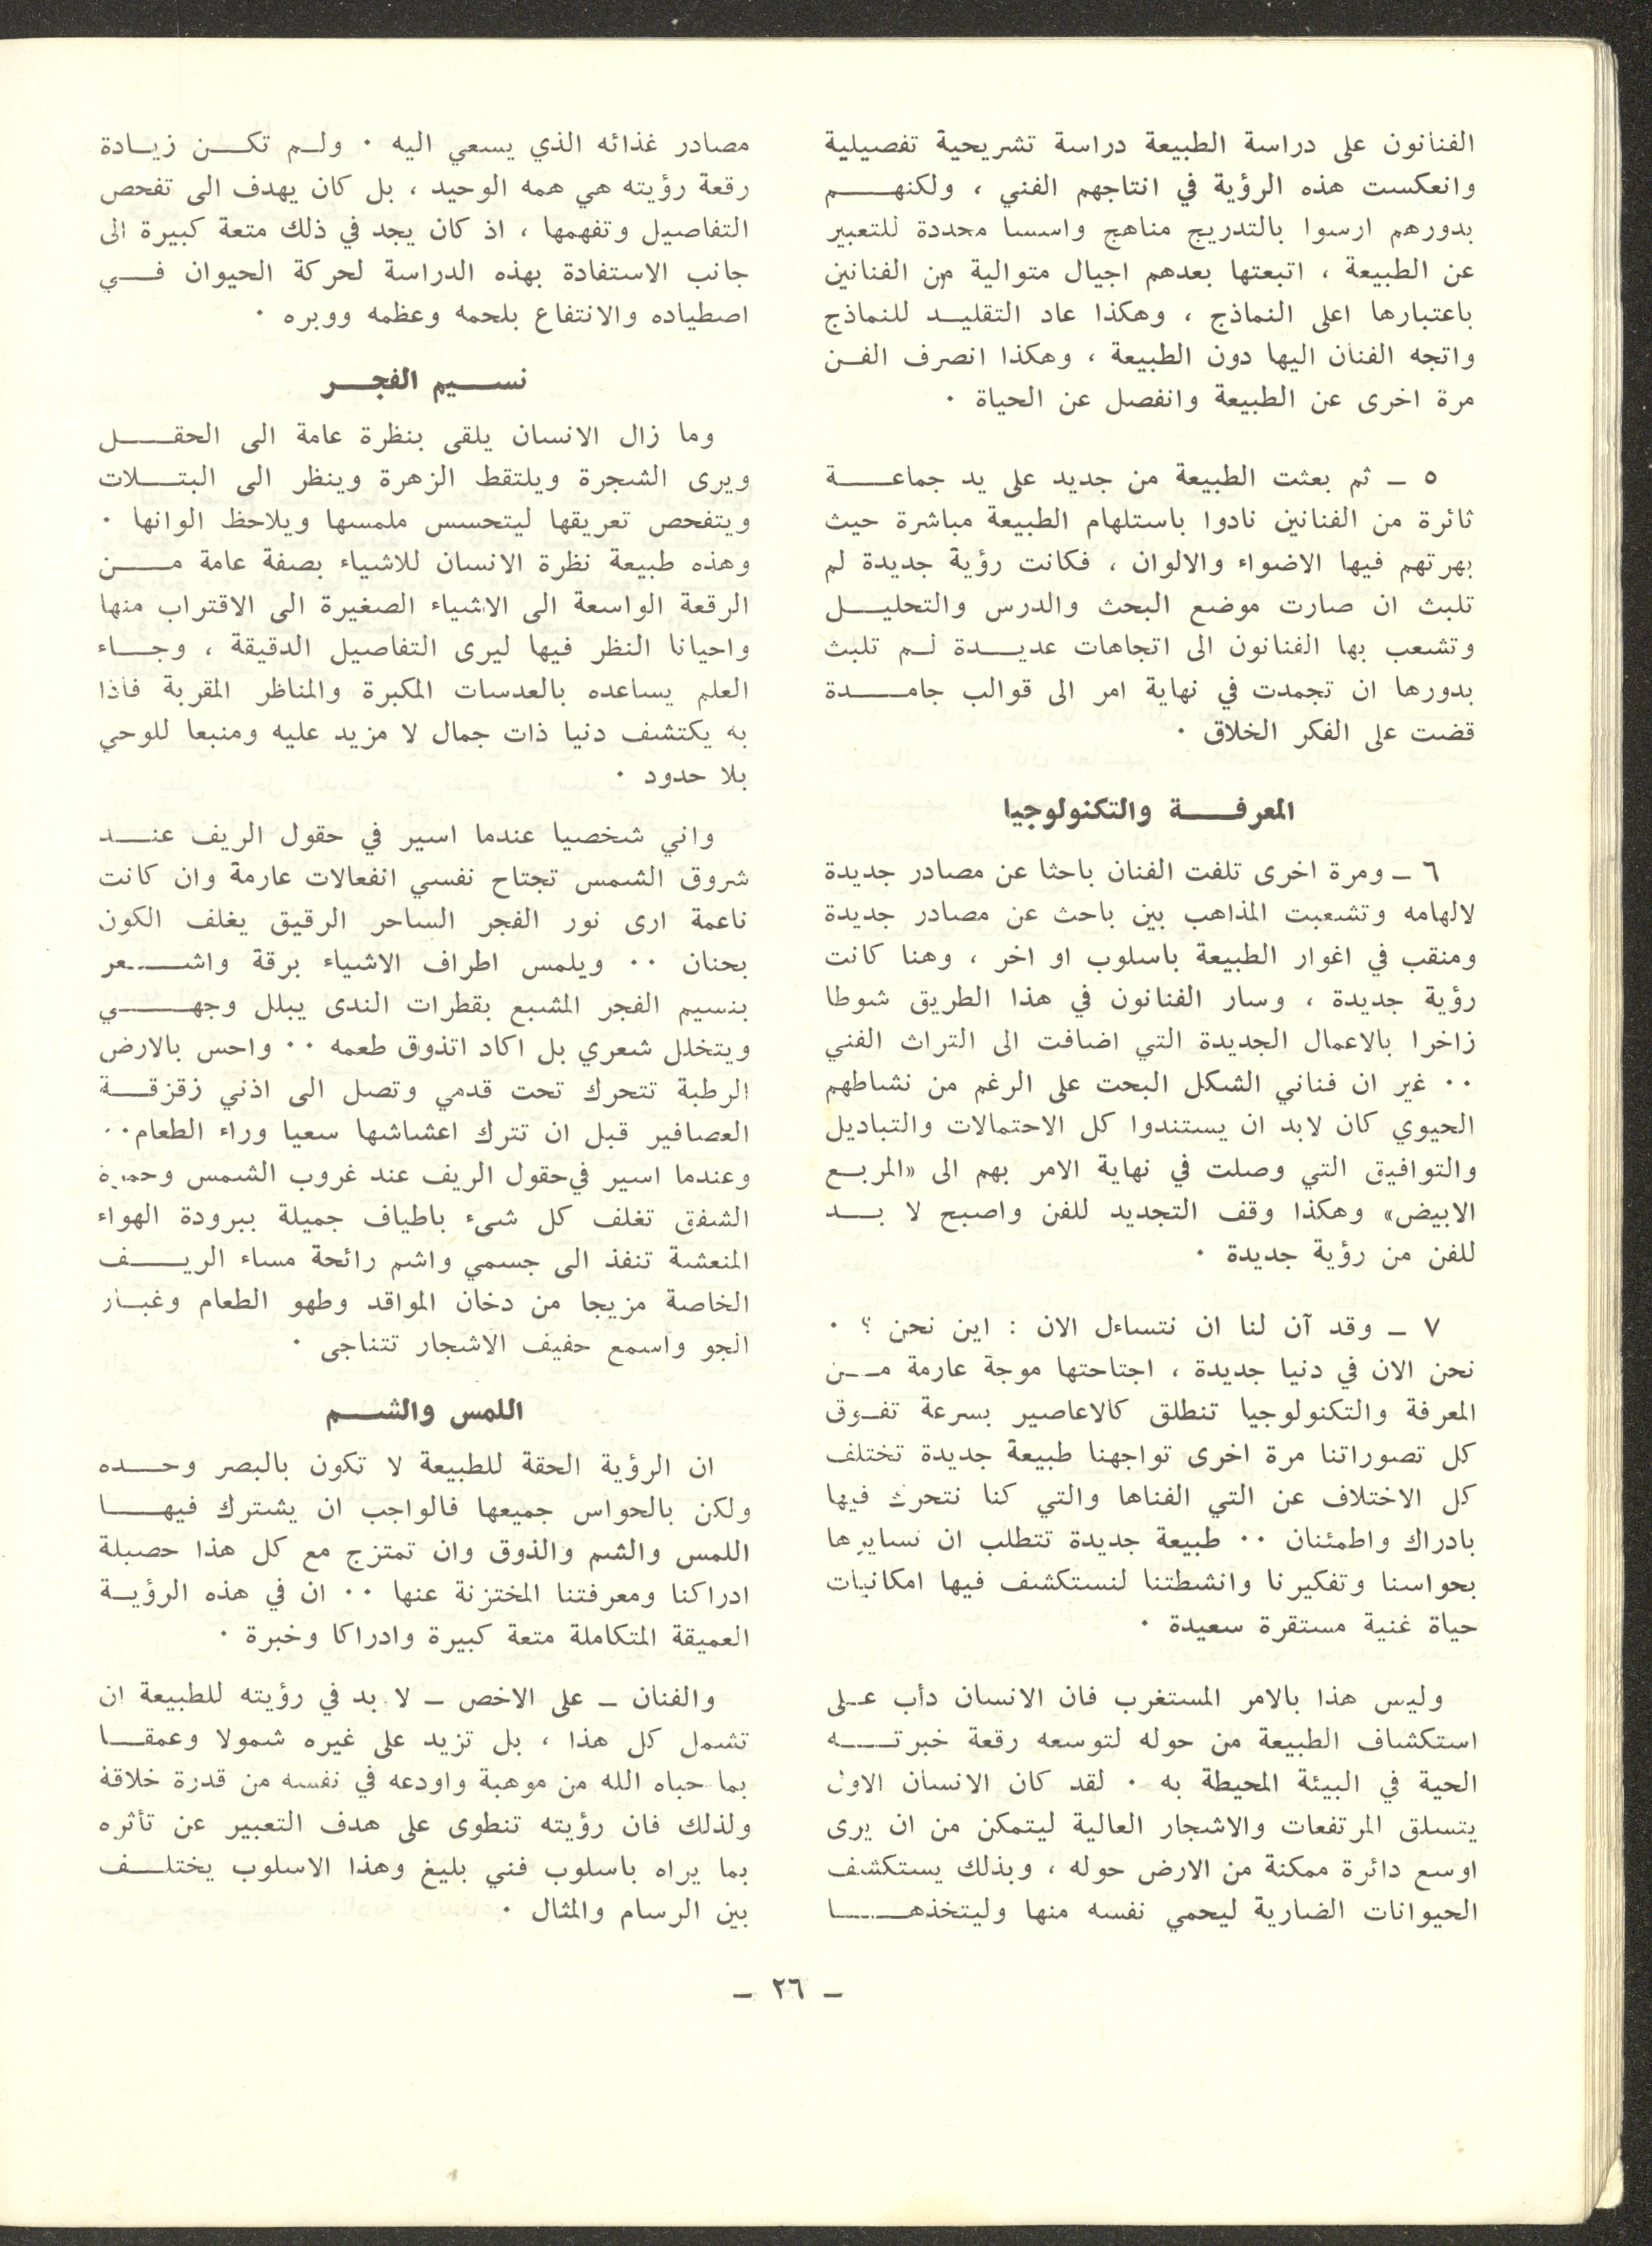 الفنانون على دراسة الطبيعة دراسة تشريحية تفصيلية
وانعكست هذه الرؤية في انتاجهم الفني ، ولكنهم
بدورهم ارسوا بالتدريج مناهج واسسا محددة للتعبير
عن الطبيعة ، اتبعتها بعدهم اجيال متوالية من الفنانين
باعتبارها اعلى النماذج ، وهكذا عاد التقليد للنماذج
واتجه الفنان اليها دون الطبيعة ، وهكذا انصرف الفن
مرة اخرى عن الطبيعة وانفصل عن الحياة ٠
٥ ـ ثم بعثت الطبيعة من جديد على يد جماعة
ثائرة من الفنانين نادوا باستلهام الطبيعة مباشرة حيث
بهرتهم فيها الاضواء والالوان ، فكانت رؤية جديدة لم
تلبث ان صارت موضع البحث والدرس والتحليل
وتشعب بها الفنانون الى اتجاهات عديدة لم تلبث
بدورها ان تجمدت في نهاية امر الى قوالب جامدة
قضت على الفكر الخلاق ٠
المعرفة والتكنولوجيا
٦ ـ ومرة اخرى تلفت الفنان باحثا عن مصادر جديدة
لالهامه وتشعبت المذاهب بين باحث عن مصادر جديدة
ومنقب في اغوار الطبيعة باسلوب او اخر ، وهنا كانت
رؤية جديدة ، وسار الفنانون في هذا الطريق شوطا
زاخرا بالاعمال الجديدة التي اضافت الى التراث الفني
٠٠ غير ان فناني الشكل البحت على الرغم من نشاطهم
الحيوي كان لابد ان يستندوا كل الاحتمالات والتباديل
والتوافيق التي وصلت في نهاية الامر بهم الى «المربع
الابيض» وهكذا وقف التجديد للفن واصبح لا بد
للفن من رؤية جديدة ٠
٧ ـ وقد آن لنا ان نتساءل الان : اين نحن ؟ ٠
نحن الان في دنيا جديدة ، اجتاحتها موجة عارمة من
المعرفة والتكنولوجيا تنطلق كالاعاصير بسرعة تفوق
كل تصوراتنا مرة اخرى تواجهنا طبيعة جديدة تختلف
كل الاختلاف عن التي الفناها والتي كنا نتحرك فيها
بادراك واطمئنان ٠٠ طبيعة جديدة تتطلب ان نسايرها
بحواسنا وتفكيرنا وانشطتنا لنستكشف فيها امكانيات
حياة غنية مستقرة سعيدة ٠
وليس هذا بالامر المستغرب فان الانسان دأب على
استكشاف الطبيعة من حوله لتوسعه رقعة خبرته
الحية في البيئة المحيطة به ٠ لقد كان الانسان الاول
يتسلق المرتفعات والاشجار العالية ليتمكن من ان يرى
اوسع دائرة ممكنة من الارض حوله ، وبذلك يستكشف
الحيوانات الضارية ليحمي نفسه منها وليتخذها
مصادر غذائه الذي يسعي اليه ٠ ولم تكن زيادة
رقعة رؤيته هي همه الوحيد ، بل كان يهدف الى تفحص
التفاصيل وتفهمها ، اذ كان يجد في ذلك متعة كبيرة الى
جانب الاستفادة بهذه الدراسة لحركة الحيوان في
اصطياده والانتفاع بلحمه وعظمه ووبره ٠
نسيم الفجر
وما زال الانسان يلقى بنظرة عامة الى الحقل
ويرى الشجرة ويلتقط الزهرة وينظر الى البتلات
ويتفحص تعريقها ليتحسس ملمسها ويلاحظ الوانها ٠
وهذه طبيعة نظرة الانسان للاشياء بصفة عامة من
الرقعة الواسعة الى الاشياء الصغيرة الى الاقتراب منها
واحيانا النظر فيها ليرى التفاصيل الدقيقة ، وجاء
العلم يساعده بالعدسات المكبرة والمناظر المقربة فاذا
به يكتشف دنيا ذات جمال لا مزيد عليه ومنبعا للوحي
بلا حدود ٠
واني شخصيا عندما اسير في حقول الريف عند
شروق الشمس تجتاح نفسي انفعالات عارمة وان كانت
ناعمة ارى نور الفجر الساحر الرقيق يغلف الكون
بحنان ٠٠ ويلمس اطراف الاشياء برقة واشعر
بنسيم الفجر المشبع بقطرات الندى يبلل وجهي
ويتخلل شعري بل اكاد اتذوق طعمه ٠٠ واحس بالارض
الرطبة تتحرك تحت قدمي وتصل الى اذني زقزقة
العصافير قبل ان تترك اعشاشها سعيا وراء الطعام٠٠
وعندما اسير في حقول الريف عند غروب الشمس وحمرة
الشفق تغلف كل شىء باطياف جميلة ببرودة الهواء
المنعشة تنفذ الى جسمي واشم رائحة مساء الريف
الخاصة مزيجا من دخان المواقد وطهو الطعام وغبار
الجو واسمع حفيف الاشجار تتناجى ٠
اللمس والشم
ان الرؤية الحقة للطبيعة لا تكون بالبصر وحده
ولكن بالحواس جميعها فالواجب ان يشترك فيها
اللمس والشم والذوق وان تمتزج مع كل هذا حصيلة
ادراكنا ومعرفتنا المختزنة عنها ٠٠ ان في هذه الرؤية
العميقة المتكاملة متعة كبيرة وادراكا وخبرة ٠
والفنان ـ على الاخص ـ لا بد في رؤيته للطبيعة ان
تشمل كل هذا ، بل تزيد على غيره شمولا وعمقا
بما حباه الله من موهبة واودعه في نفسه من قدرة خلاقة
ولذلك فان رؤيته تنطوى على هدف التعبير عن تأثره
بما يراه باسلوب فني بليغ وهذا الاسلوب يختلف
بين الرسام والمثال ٠
ـ ٢٦ ـ